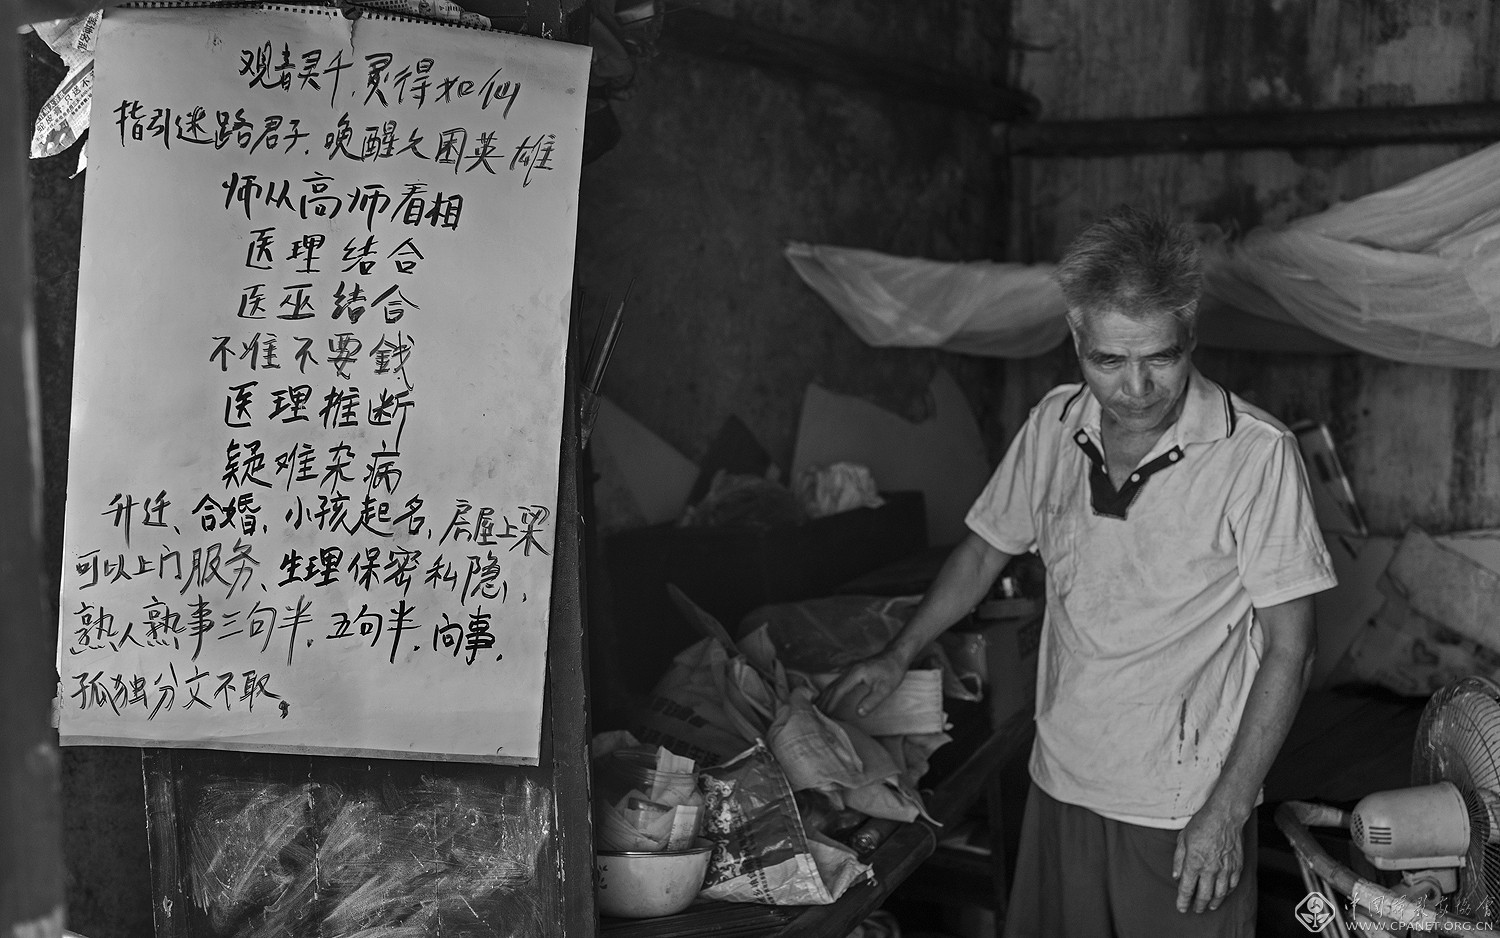 观音灵千.灵得如仙
指引迷路君子.唤醒久困英雄
师从高师看相
医理结合
医巫结合
不准不要錢
医理推断
疑难杂病
升迁、合婚,小孩起名,房屋上梁
可以上门服务、生理保密私隐,
熟人熟事三句半.五句半.问事.
孤独分文不取。
中国摄影家协会
WWW.CPANET.ORG.CN